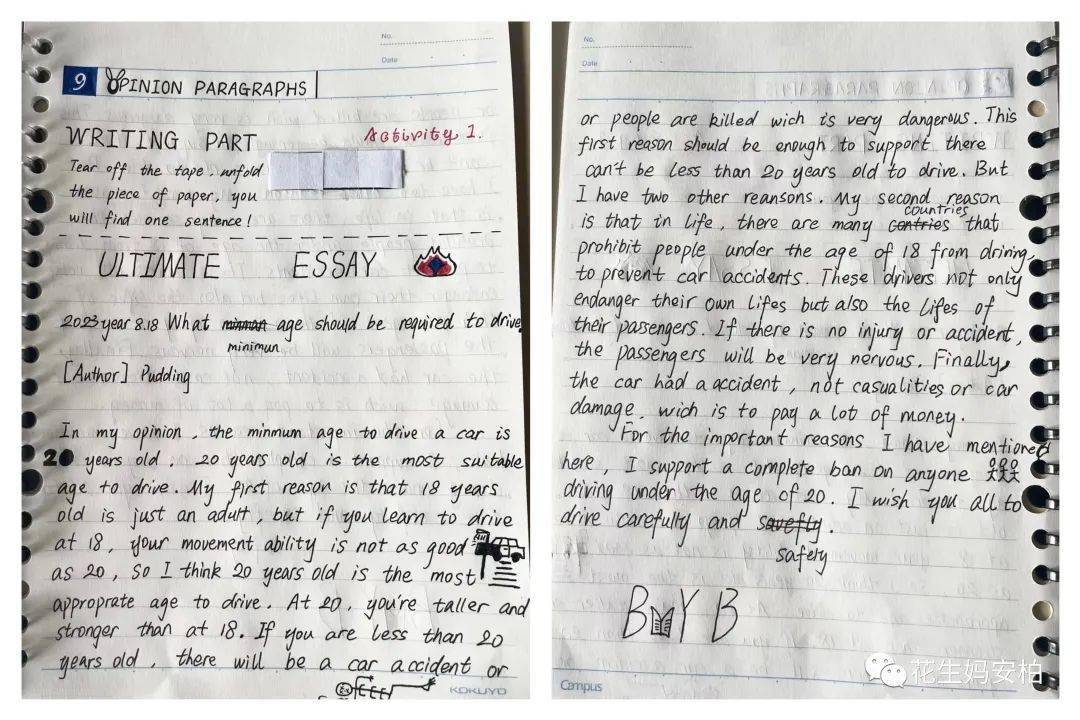 No.
Date
9 OPINION PARAGRAPHS
WRITING PART Activity 1.
Tear off the tape, unfold
the piece of paper, you
will find one sentence!
ULTIMATE ESSAY
2023 year 8.18 What age should be required to drive
minimun
[Author] Pudding
In my opinion, the minmum age to drive a car is
20 years old. 20 years old is the most suitable
age to drive. My first reason is that 18 years
old is just an adult, but if you learn to drive
at 18, your movement ability is not as good
as 20, so I think 20 years old is the most
approprate age to drive. At 20, you're taller and
stronger than at 18. If you are less than 20
years old, there will be a car accident or
KOKUYO
No.
Date
or people are killed wich is very dangerous. This
first reason should be enough to support there
can't be less than 20 years old to drive. But
I have two other reansons. My second reason
countries
is that in life, there are many contries that
prohibit people under the age of 18 from drining,
to prevent car accidents. These drivers not only
endanger their own lifes but also the lifes of
their pasengers. If there is no injury or accident,
the passengers will be very nervous. Finally,
the car had a accident, not casualities or car
damage, wich is to pag a lot of money.
For the important reasons I have mentioned
here, I support a complete ban on anyone
driving under the age of 20. I wish you all to
drive carefully and savefly.
safely
BYB
Campus
花生妈安柏